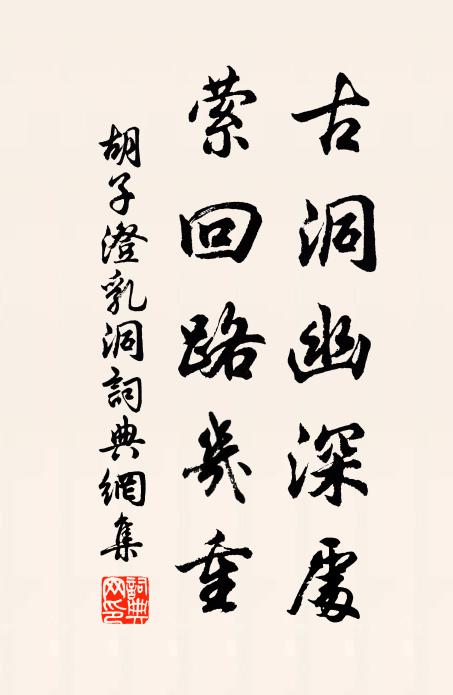 古洞幽深處
縈回路幾重
胡子澄乳洞詞典網集
詞典网印